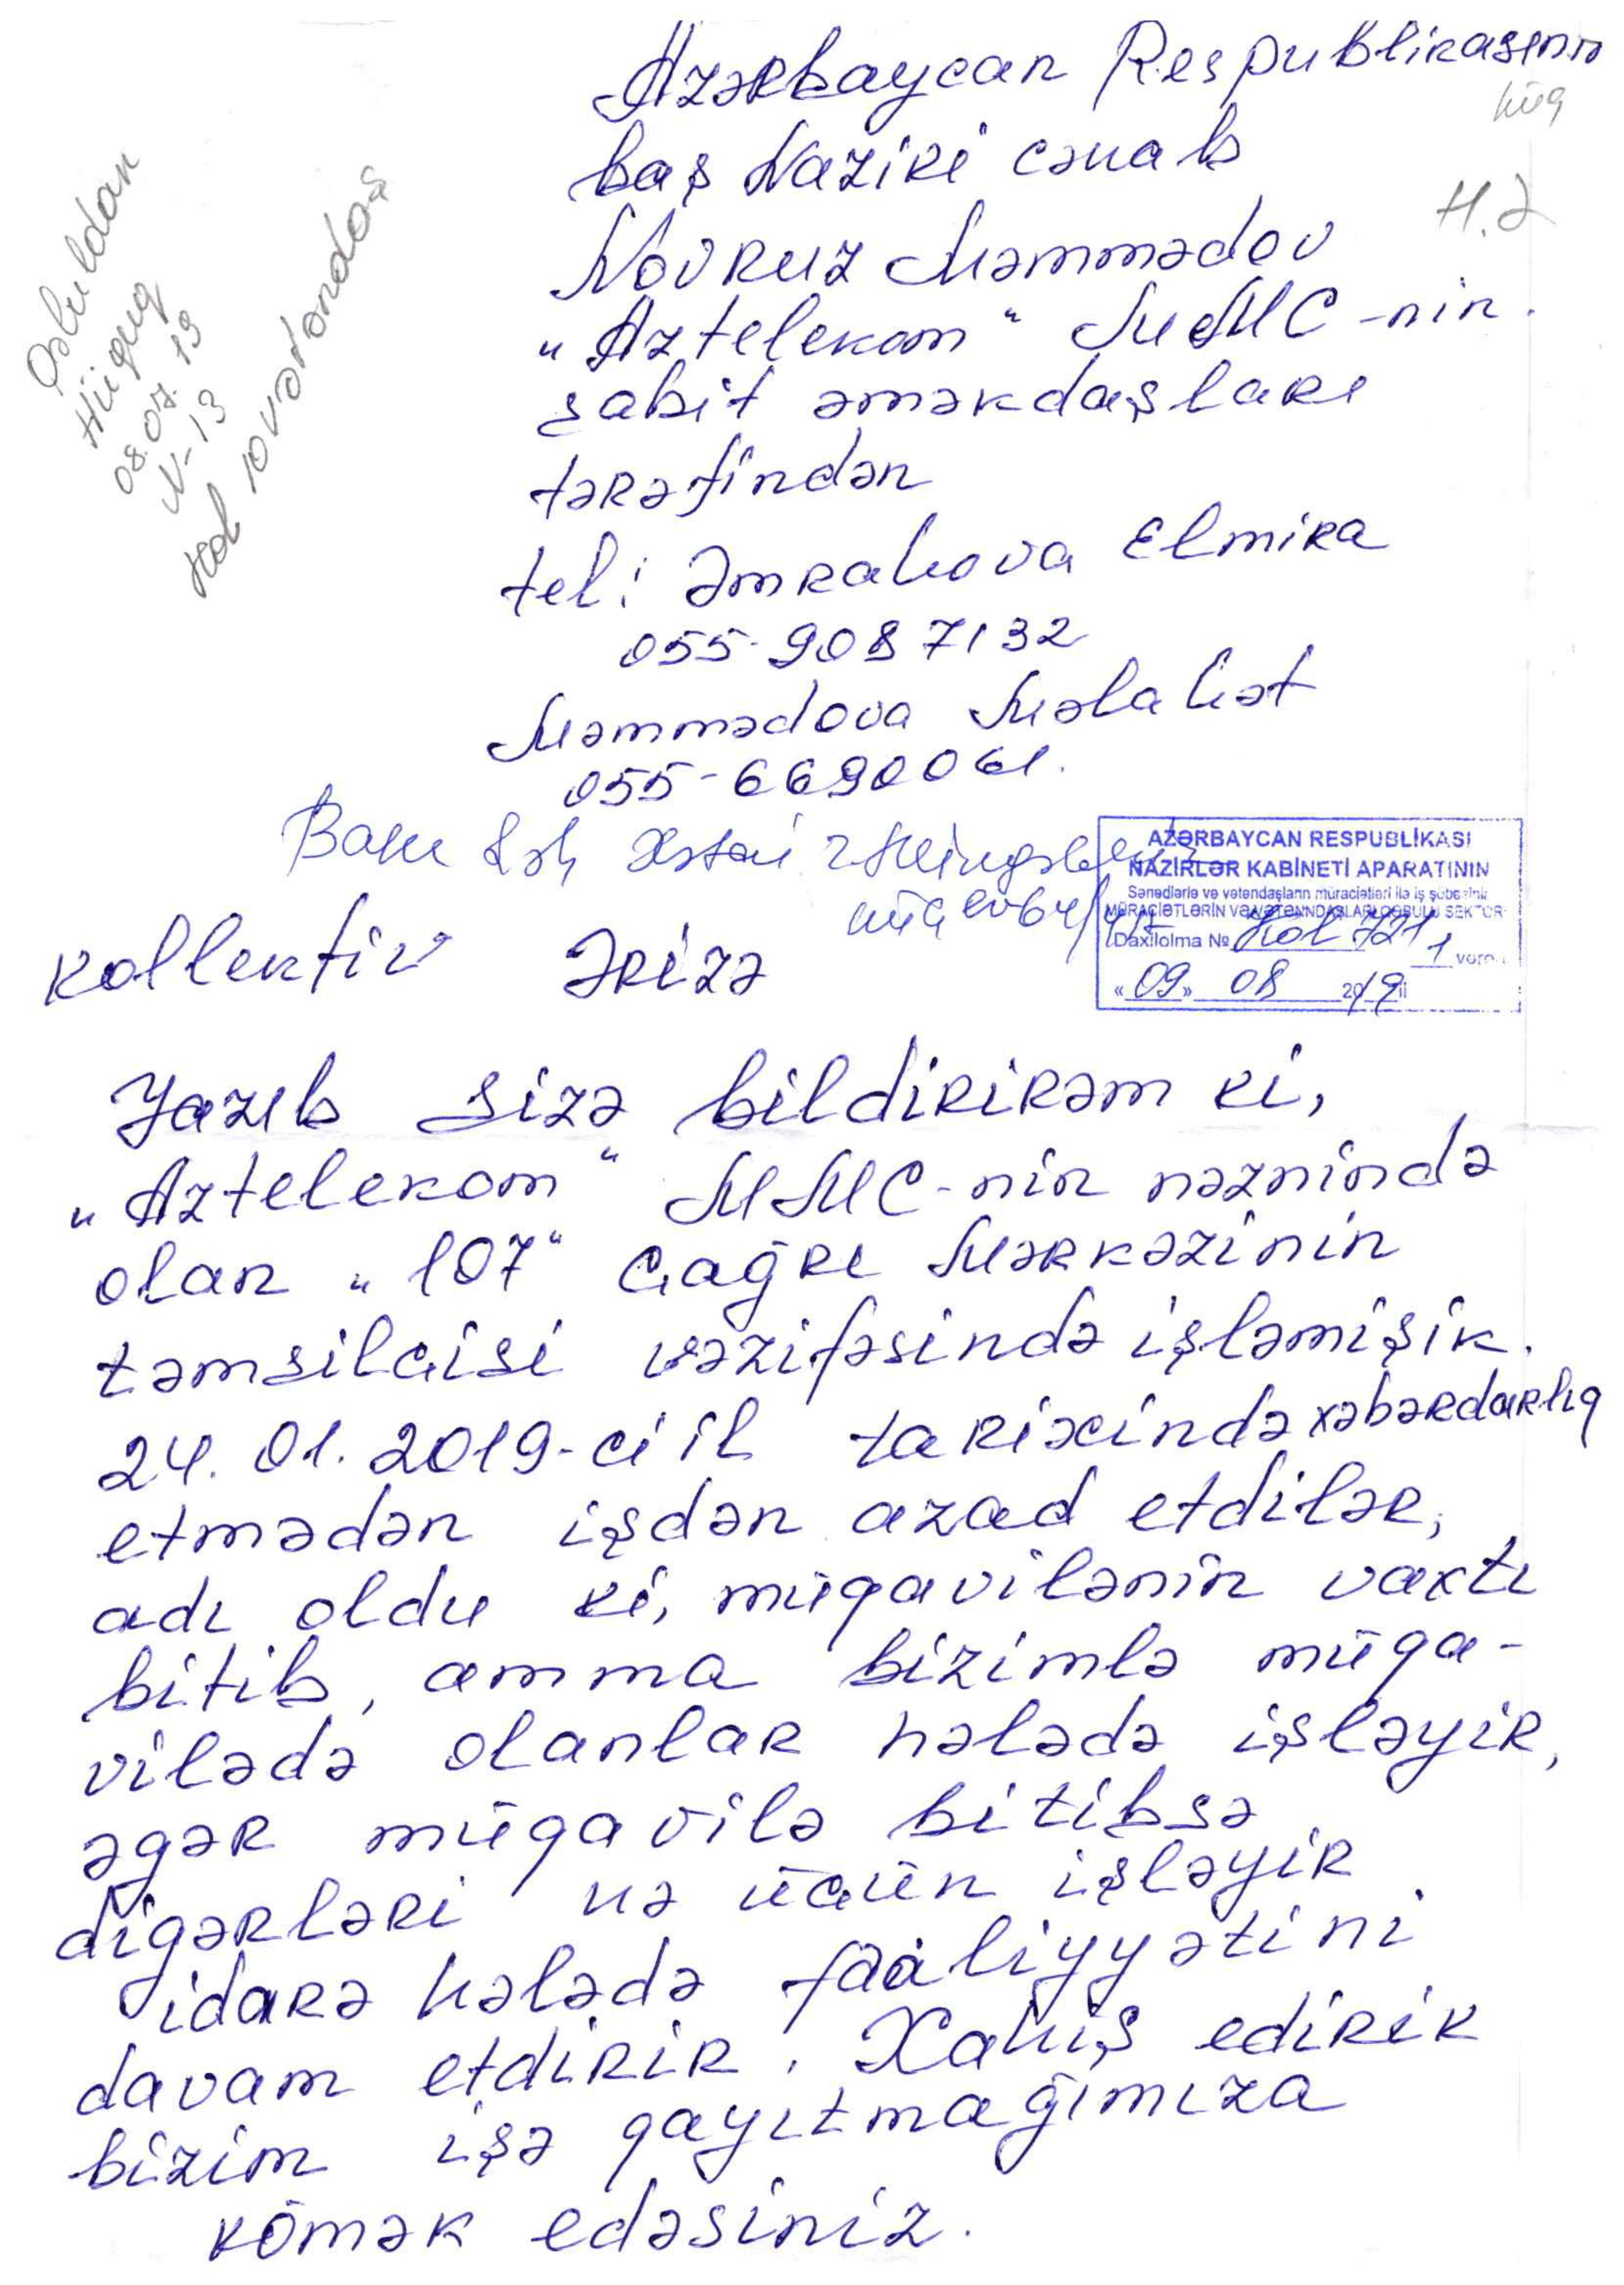 Azərbaycan Respublikasının
baş Naziri cənab
Novruz Məmmədov
"Aztelekom" MMC-nin
sabit əməkdaşları
tərəfindən
tel: Əmrahova Elmira
055-9087132
Məmmədova Məlahət
055-6690061.
H.Ə
Qəbuldan
Hüquq
08.07.19
N-13
Kol 10 vətəndaş
Bakı şəh Xətai
AZƏRBAYCAN RESPUBLİKASI
NAZİRLƏR KABİNETİ APARATININ
Sənədlərlə və vətəndaşların müraciətləri ilə iş şöbəsinin
MÜRACİƏTLƏRİN VƏ VƏTƏNDAŞLARI QƏBULU SEKTORU
Daxilolma № Kol 721 1 vərəq
«09» 08 2019 il
Kollektiv Ərizə
Yazıb sizə bildirirəm ki,
"Aztelekom" MMC-nin nəznində
olan "107" Çağrı Mərkəzinin
təmsilçisi vəzifəsində işləmişik.
24.01.2019-ci il tarixində xəbərdarlıq
etmədən işdən azad etdilər,
adı oldu ki, müqavilənin vaxtı
bitib, amma bizimlə müqa-
vilədə olanlar hələdə işləyir,
əgər müqavilə bitibsə
digərləri nə üçün işləyir
idarə hələdə fəaliyyətini
davam etdirir. Xahiş edirik
bizim işə qayıtmağımıza
kömək edəsiniz.